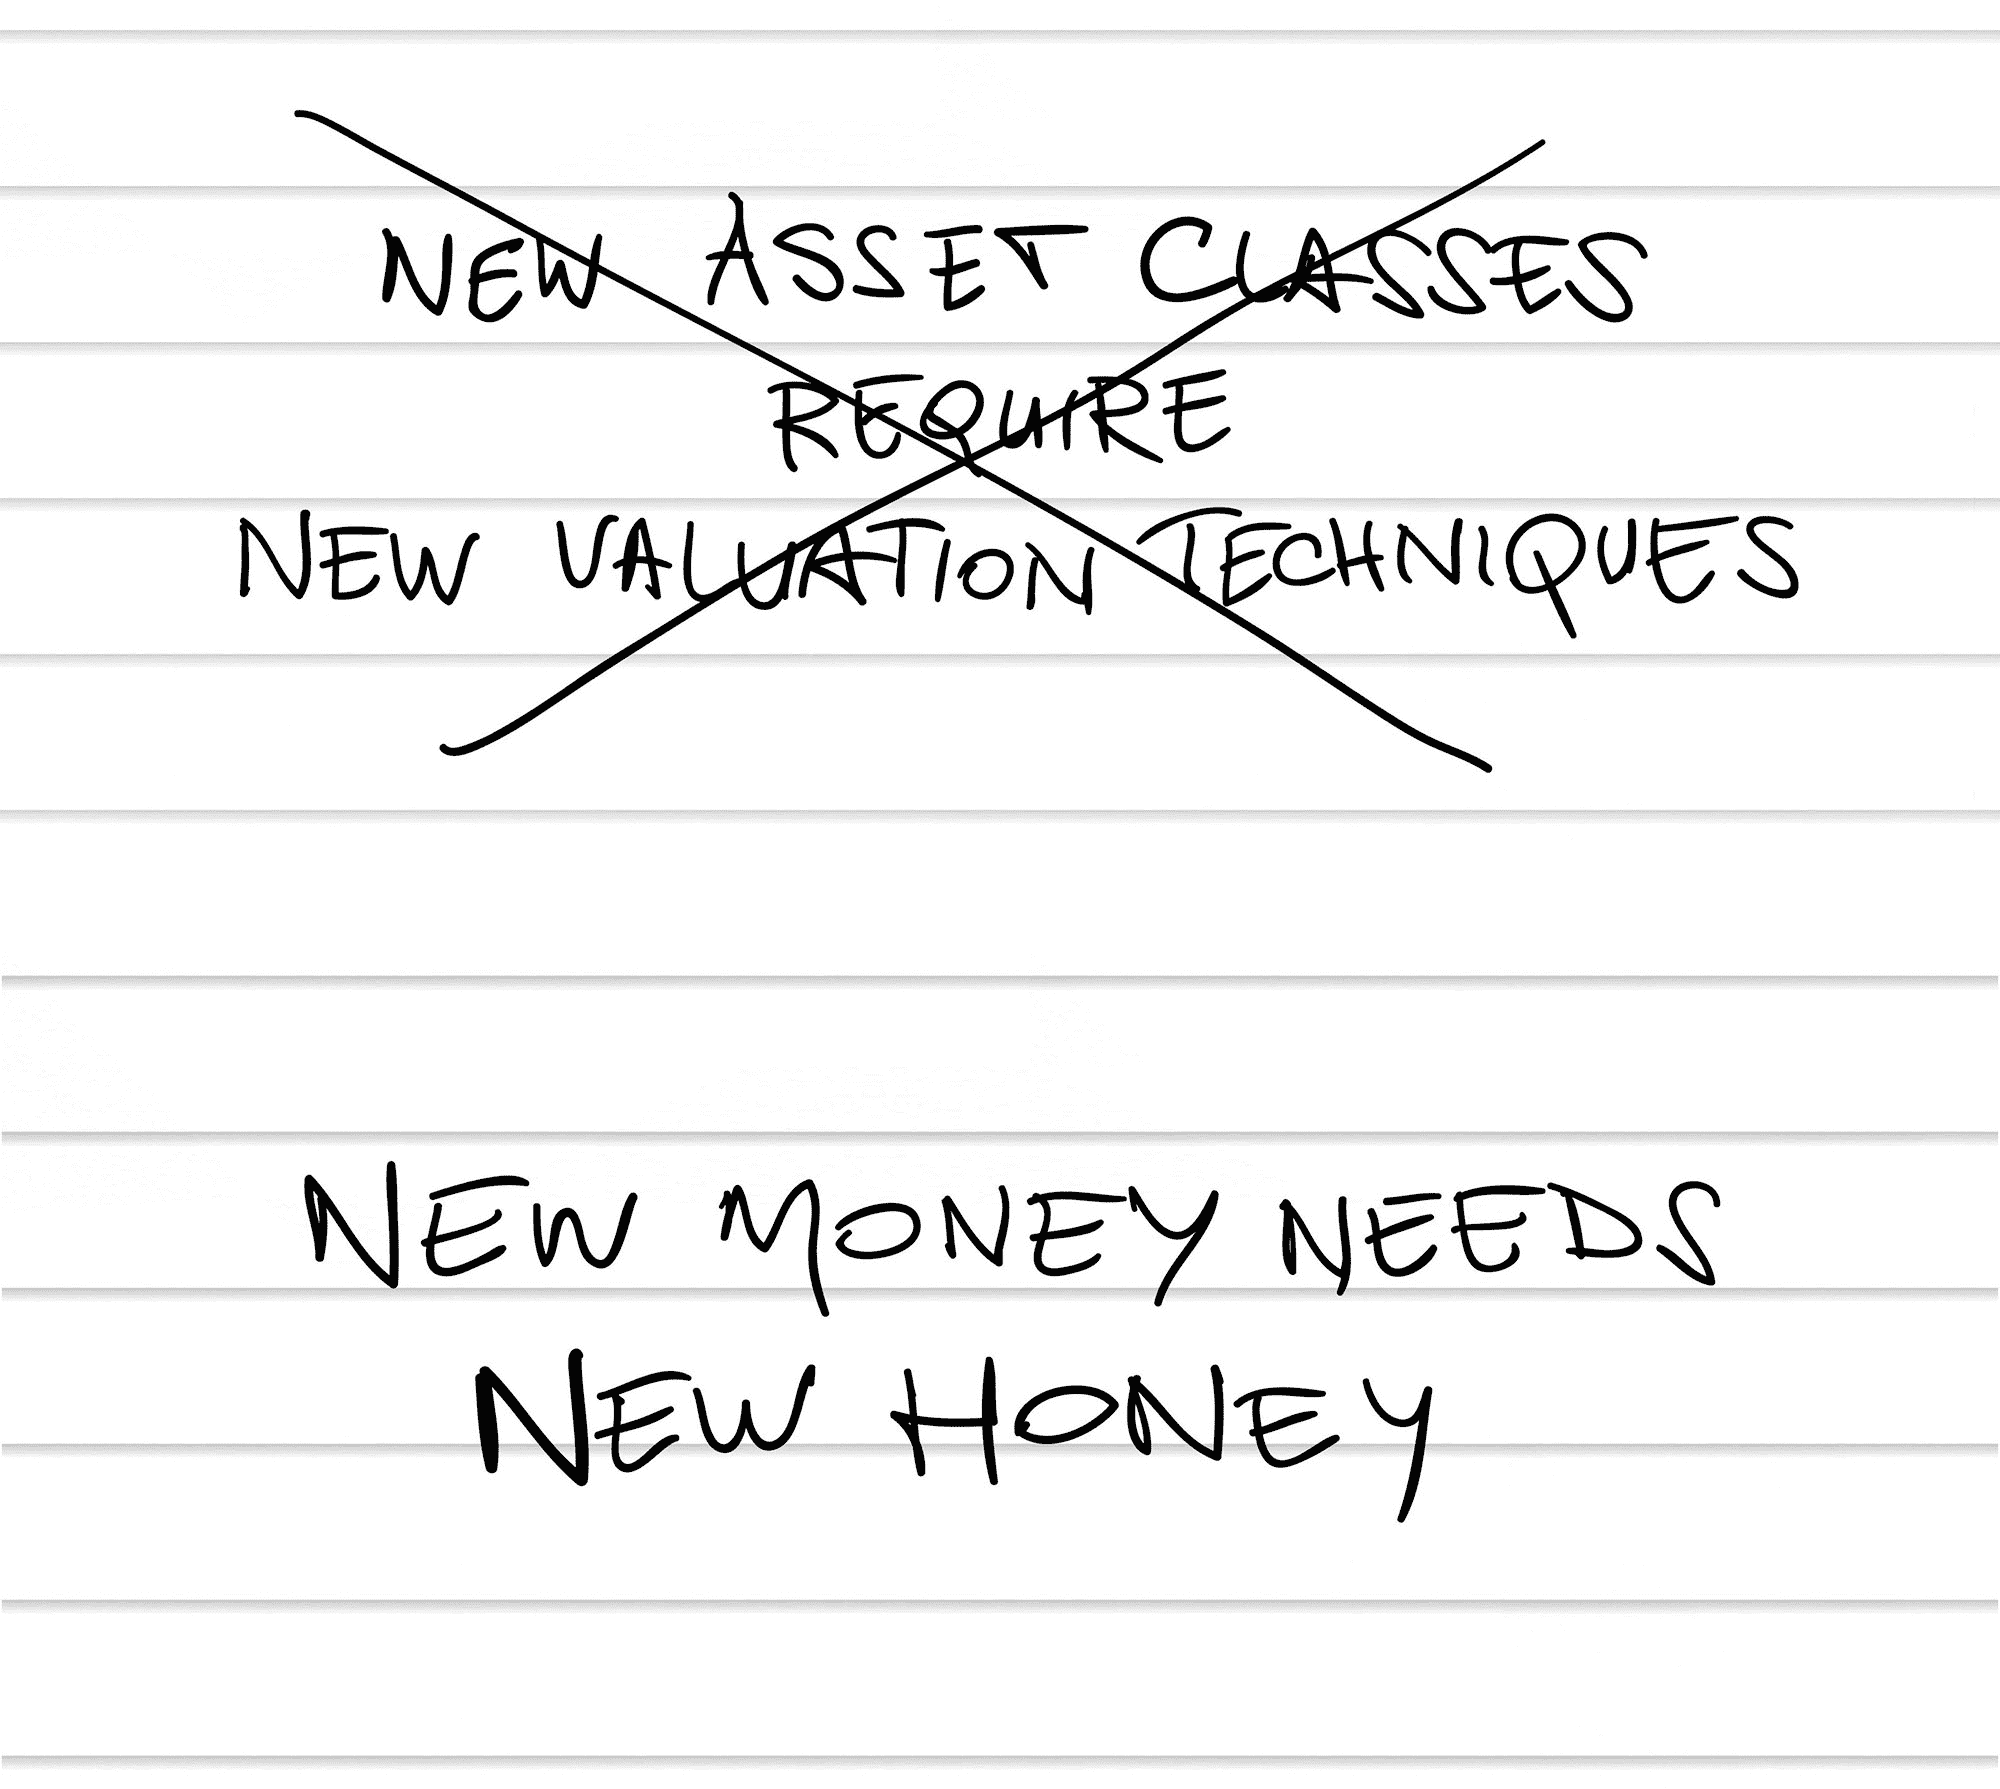 NEW ASSET CLASSES
REQUIRE
NEW VALUATION TECHNIQUES
NEW MONEY NEEDS
NEW HONEY